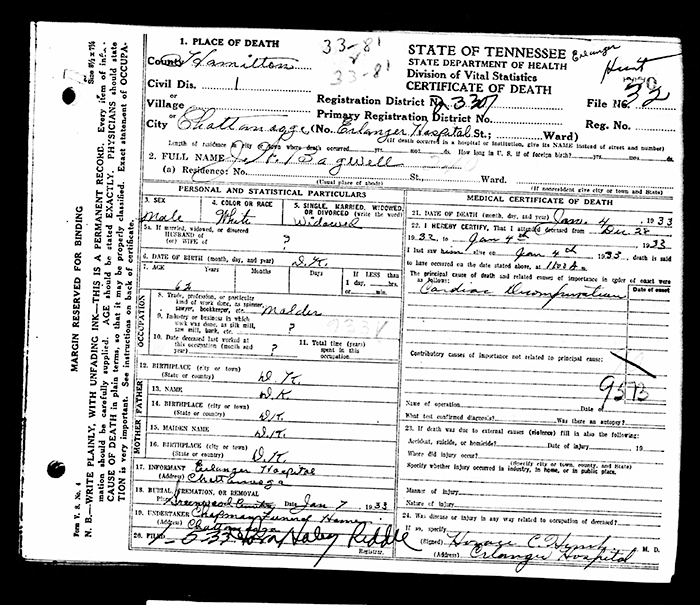 MARGIN RESERVED FOR BINDING
N. B.—WRITE PLAINLY, WITH UNFADING INK—THIS IS A PERMANENT RECORD. Every item of information should be carefully supplied. AGE should be stated EXACTLY. PHYSICIANS should state CAUSE OF DEATH in plain terms, so that it may be properly classified. Exact statement of OCCUPATION is very important. See instructions on back of certificate.
Form V. S. No. 4
1. PLACE OF DEATH
County Hamilton
Civil Dis. 1
Village
City Chattanooga (No. Erlanger Hospital St.; Ward)
33-81
33-81
STATE OF TENNESSEE
STATE DEPARTMENT OF HEALTH
Division of Vital Statistics
CERTIFICATE OF DEATH
Erlanger
Hunt
Registration District No.
File No. 32
Primary Registration District No.
Reg. No.
(If death occurred in a hospital or institution, give its NAME instead of street and number)
Length of residence in city or town where death occurred yrs. mos. ds. How long in U. S. if of foreign birth? yrs. mos. ds.
2. FULL NAME Bagwell
(a) Residence: No. St., Ward.
(Usual place of abode) (If nonresident give city or town and State)
PERSONAL AND STATISTICAL PARTICULARS
3. SEX
Male
4. COLOR OR RACE
White
5. SINGLE, MARRIED, WIDOWED, OR DIVORCED (write the word)
Widowed
5a. If married, widowed, or divorced
HUSBAND of
(or) WIFE of ?
6. DATE OF BIRTH (month, day, and year) D.K.
7. AGE Years Months Days If LESS than 1 day, hrs. or min.
62
OCCUPATION
8. Trade, profession, or particular kind of work done, as spinner, sawyer, bookkeeper, etc. Molder
9. Industry or business in which work was done, as silk mill, saw mill, bank, etc. ?
10. Date deceased last worked at this occupation (month and year) ?
11. Total time (years) spent in this occupation
12. BIRTHPLACE (city or town) D.K.
(State or country)
FATHER
13. NAME D.K
14. BIRTHPLACE (city or town) D.K.
(State or country)
MOTHER
15. MAIDEN NAME D.K.
16. BIRTHPLACE (city or town) D.K
(State or country)
17. INFORMANT Erlanger Hospital
(Address) Chattanooga
18. BURIAL, CREMATION, OR REMOVAL
Place Greenwood Date Jan 7 1933
19. UNDERTAKER Chapman Funeral Home
(Address) Chattanooga
20. FILED Haley Riddle
Registrar.
MEDICAL CERTIFICATE OF DEATH
21. DATE OF DEATH (month, day, and year) Jan 4 1933
22. I HEREBY CERTIFY, That I attended deceased from Dec 28
1932, to Jan 4th 1933
I last saw him on Jan 4th 1933, death is said
to have occurred on the date stated above, at
The principal cause of death and related causes of importance in order of onset were as follows:
Date of onset
Cardiac Decompensation
Contributory causes of importance not related to principal cause:
95B
Name of operation Date of
What test confirmed diagnosis? Was there an autopsy?
23. If death was due to external causes (violence) fill in also the following:
Accident, suicide, or homicide? Date of injury 19
Where did injury occur?
(Specify city or town, county, and State)
Specify whether injury occurred in industry, in home, or in public place.
Manner of injury
Nature of injury
24. Was disease or injury in any way related to occupation of deceased?
If so, specify
(Signed) Horace C. M. D.
(Address) Erlanger Hospital